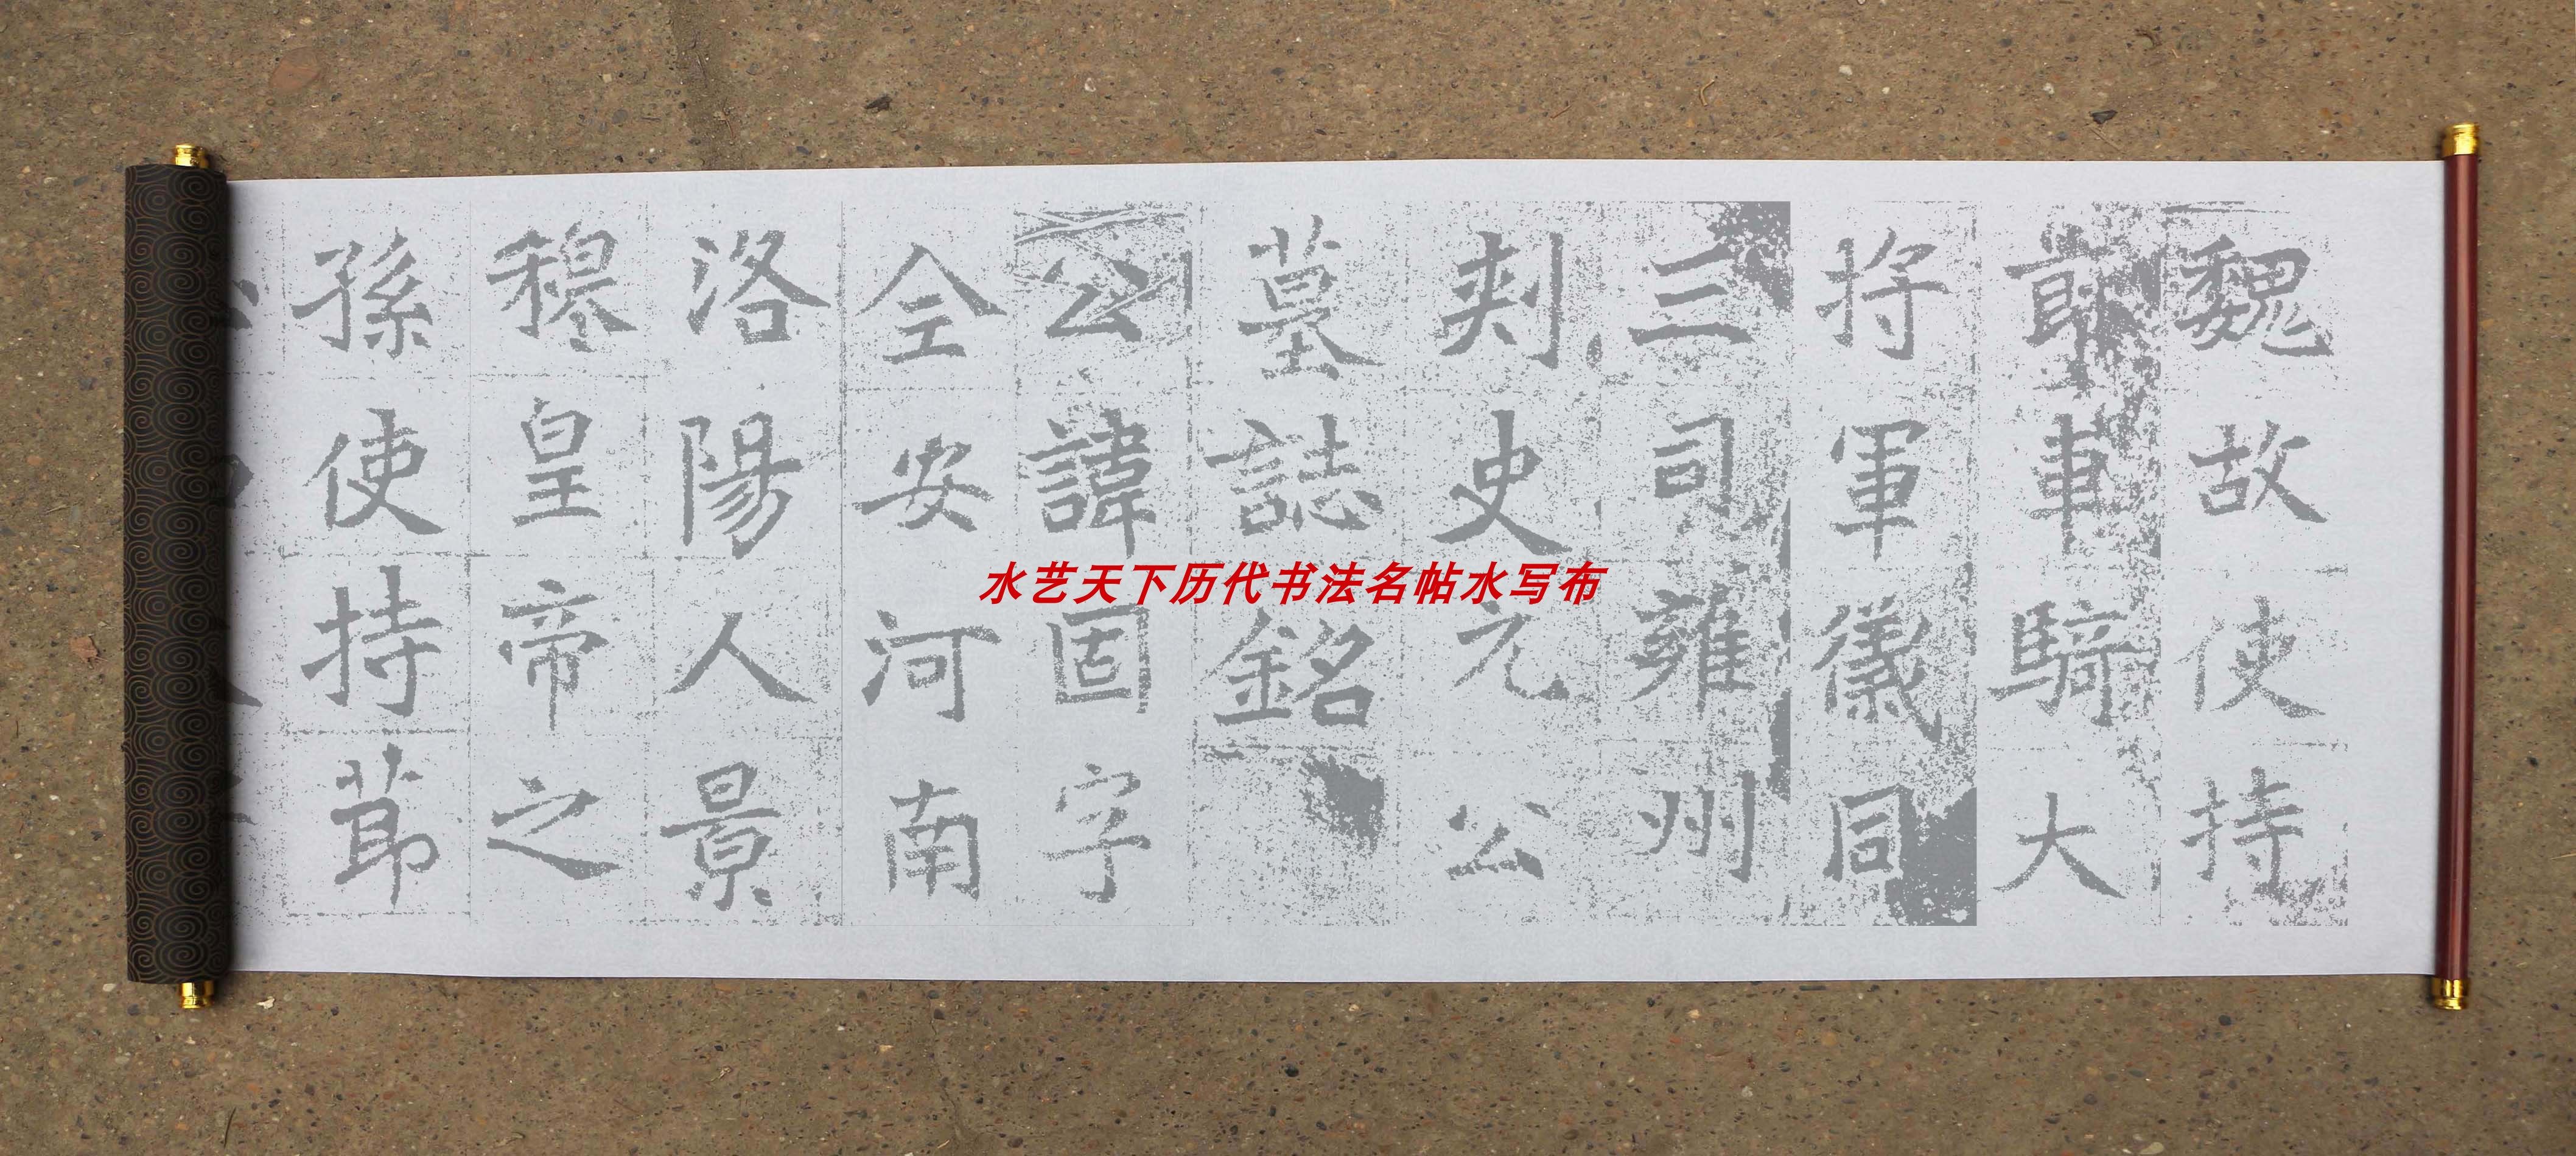 魏故使持
節車騎大
將軍儀同
三司雍州
刾史元公
墓誌銘
公諱固字
全安河南
洛陽人景
穆皇帝之
孫使持莭
水艺天下历代书法名帖水写布